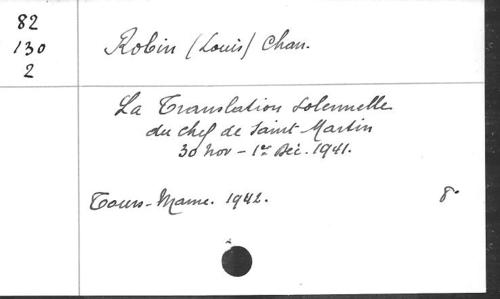 82
130
2
Robin (Louis) Chan.
La Translation solennelle
du chef de Saint Martin
30 Nov - 1er Déc. 1941.
Tours - Mame. 1942. 8°